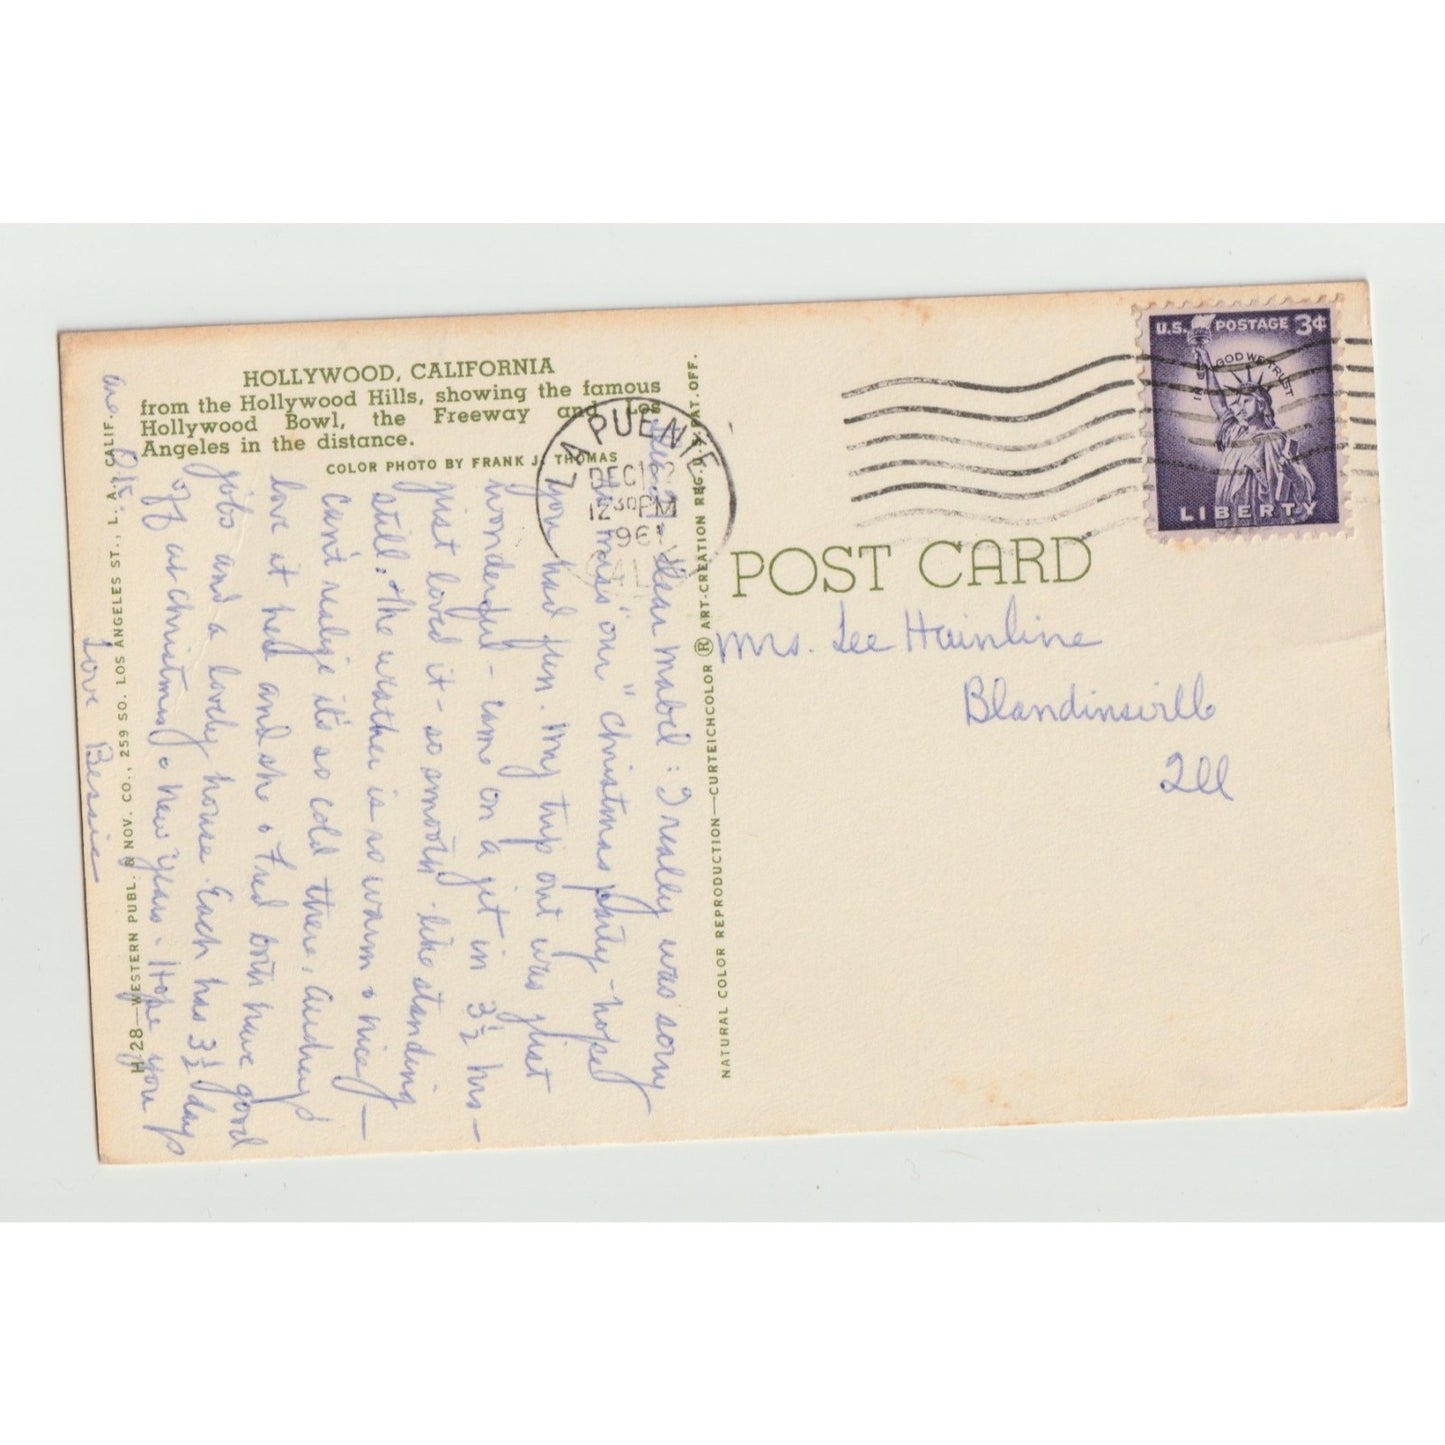 HOLLYWOOD, CALIFORNIA
from the Hollywood Hills, showing the famous
Hollywood Bowl, the Freeway and Los
Angeles in the distance.
COLOR PHOTO BY FRANK J. THOMAS
H-28—WESTERN PUBL. & NOV. CO., 259 SO. LOS ANGELES ST., L. A., CALIF.
Dear Mabel: I really was sorry
to miss "our" Christmas party - hope
you had fun. My trip out was just
wonderful - came on a jet in 3½ hrs -
just loved it - so smooth like standing
still. The weather is so warm & nice -
can't realize it's so cold there. Audrey's
love it here and she & Fred both have good
jobs and a lovely house. Each has 3½ days
off at Christmas & New Years. Hope you
are O.K.
Love Bessie
NATURAL COLOR REPRODUCTION—CURTEICHCOLOR ® ART-CREATION REG. U.S. PAT. OFF.
LA PUENTE
DEC
12 30 PM
196
U.S. POSTAGE 3¢
IN GOD WE TRUST
LIBERTY
POST CARD
Mrs. Lee Hainline
Blandinsville
Ill